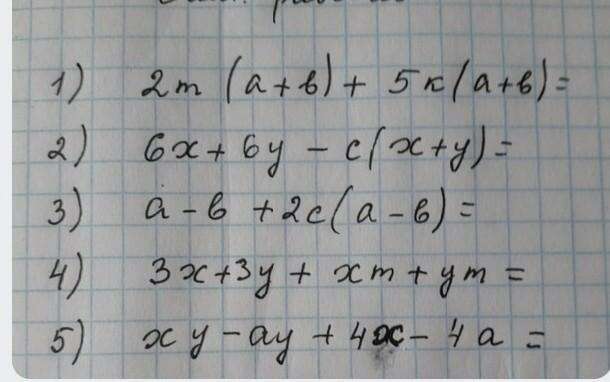 1) 2m (а+в) + 5к(а+в)=
2) 6x+6y - c(x+y)=
3) а-в +2c(а-в)=
4) 3x+3y + xm+ym =
5) xy-ay + 4x-4a =